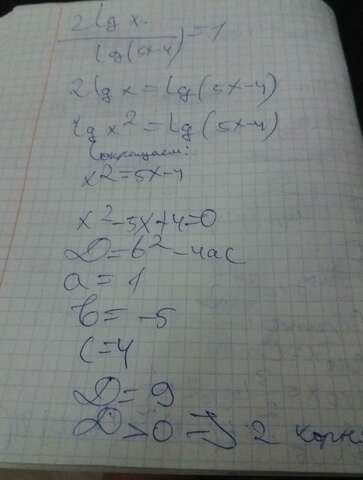 2lg x
lg(5x-4) =1
2lg x=lg(5x-4)
lg x²=lg(5x-4)
Сокращаем:
x²=5x-4
x²-5x+4=0
D=b²-4ac
a=1
b=-5
c=4
D=9
D>0 => 2 корн